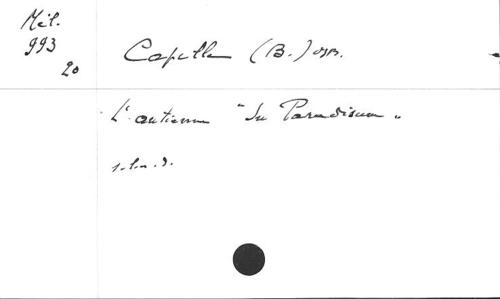 Mél.
993
20
Capelle (B.) OSB.
L'antienne "In Paradisum"
s.l.n.d.